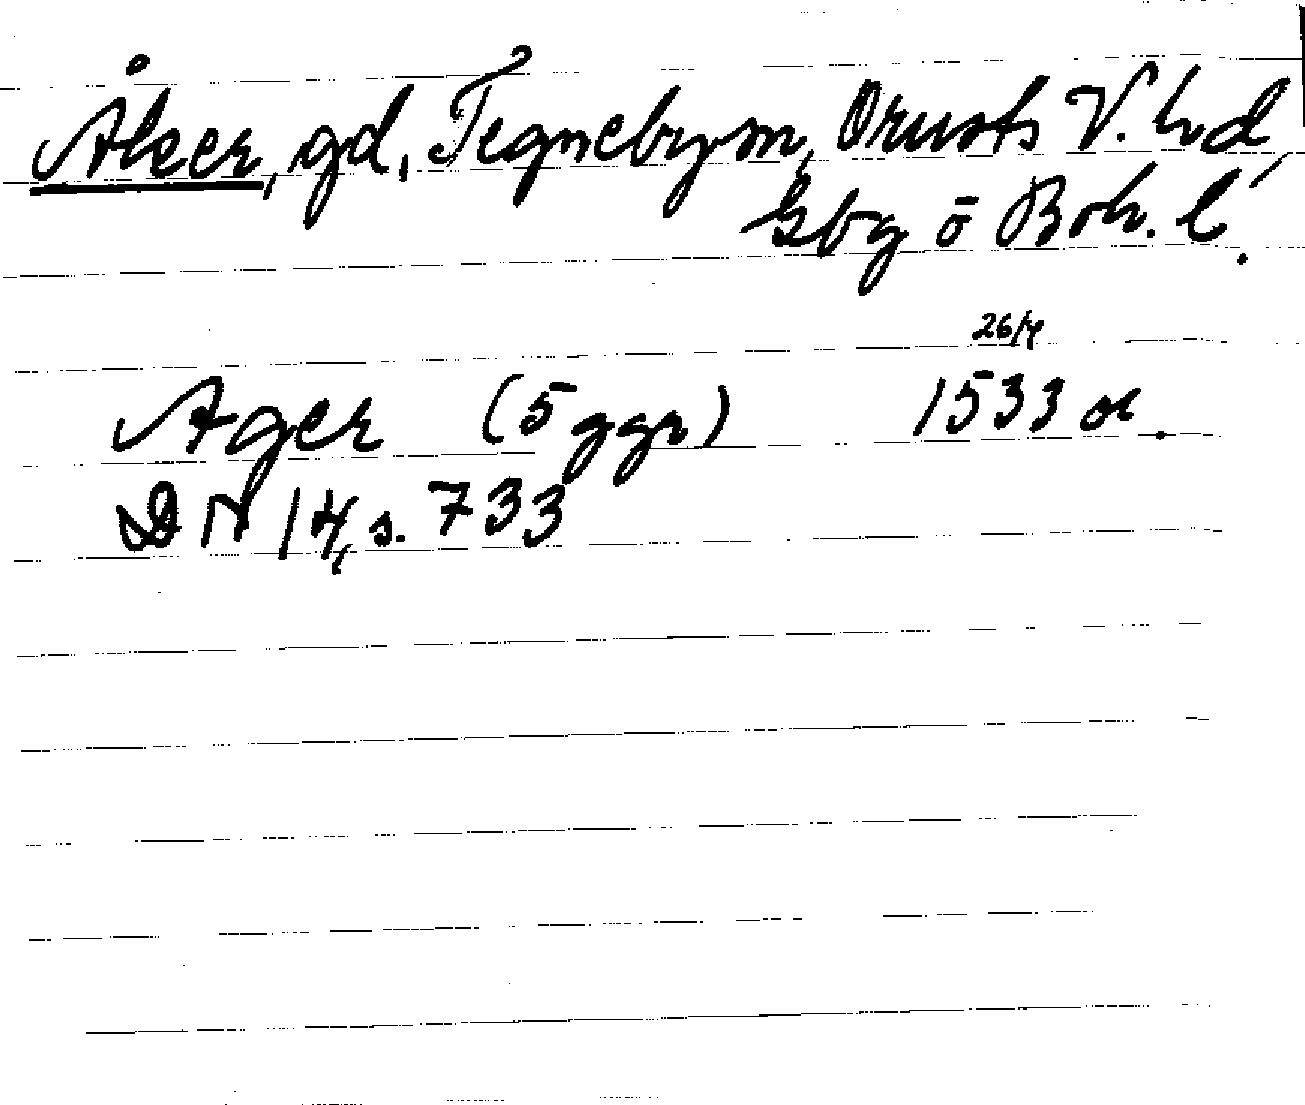 Åker, gd, Tegneby sn, Orusts V. hd,
Gbg o Boh. l.
26/4
Ager (5 ggr) 1533 or.
DN 14, s. 733